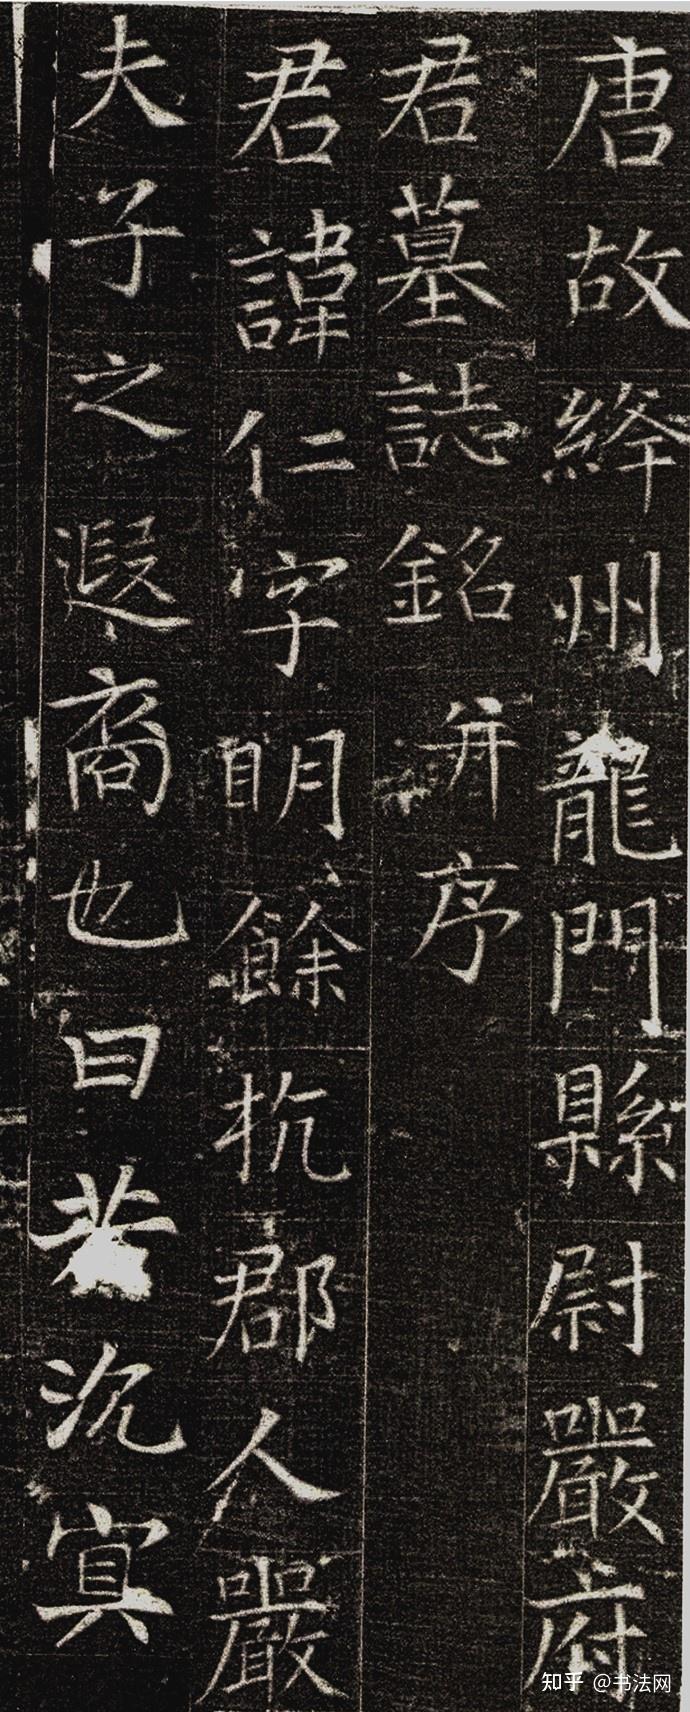 唐故絳州龍門縣尉嚴府
君墓誌銘并序
君諱仁字明餘杭郡人嚴
夫子之遐裔也曰若沉冥
知乎 @书法网